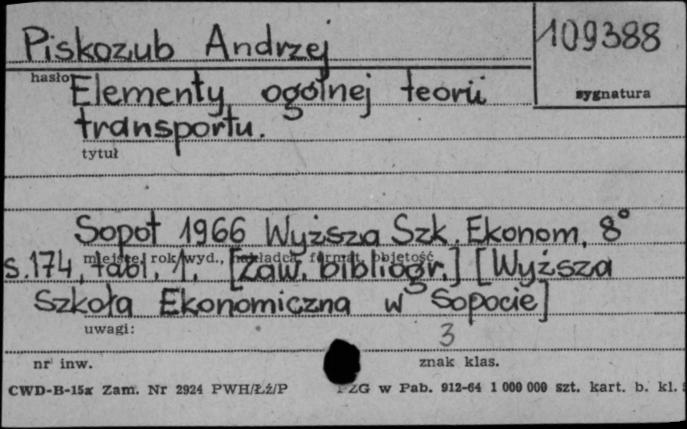 Piskozub Andrzej
109388
hasło
sygnatura
Elementy ogólnej teorii
transportu.
tytuł
Sopot 1966 Wyższa Szk. Ekonom. 8°
miejsce, rok wyd., nakładca, format, objętość
s. 174, tabl. 1. [Zaw. bibliogr.] [Wyższa
Szkoła Ekonomiczna w Sopocie]
uwagi:
3
nr inw.
znak klas.
CWD-B-15x Zam. Nr 2924 PWH/Łż/P PZG w Pab. 912-64 1 000 000 szt. kart. b. kl.